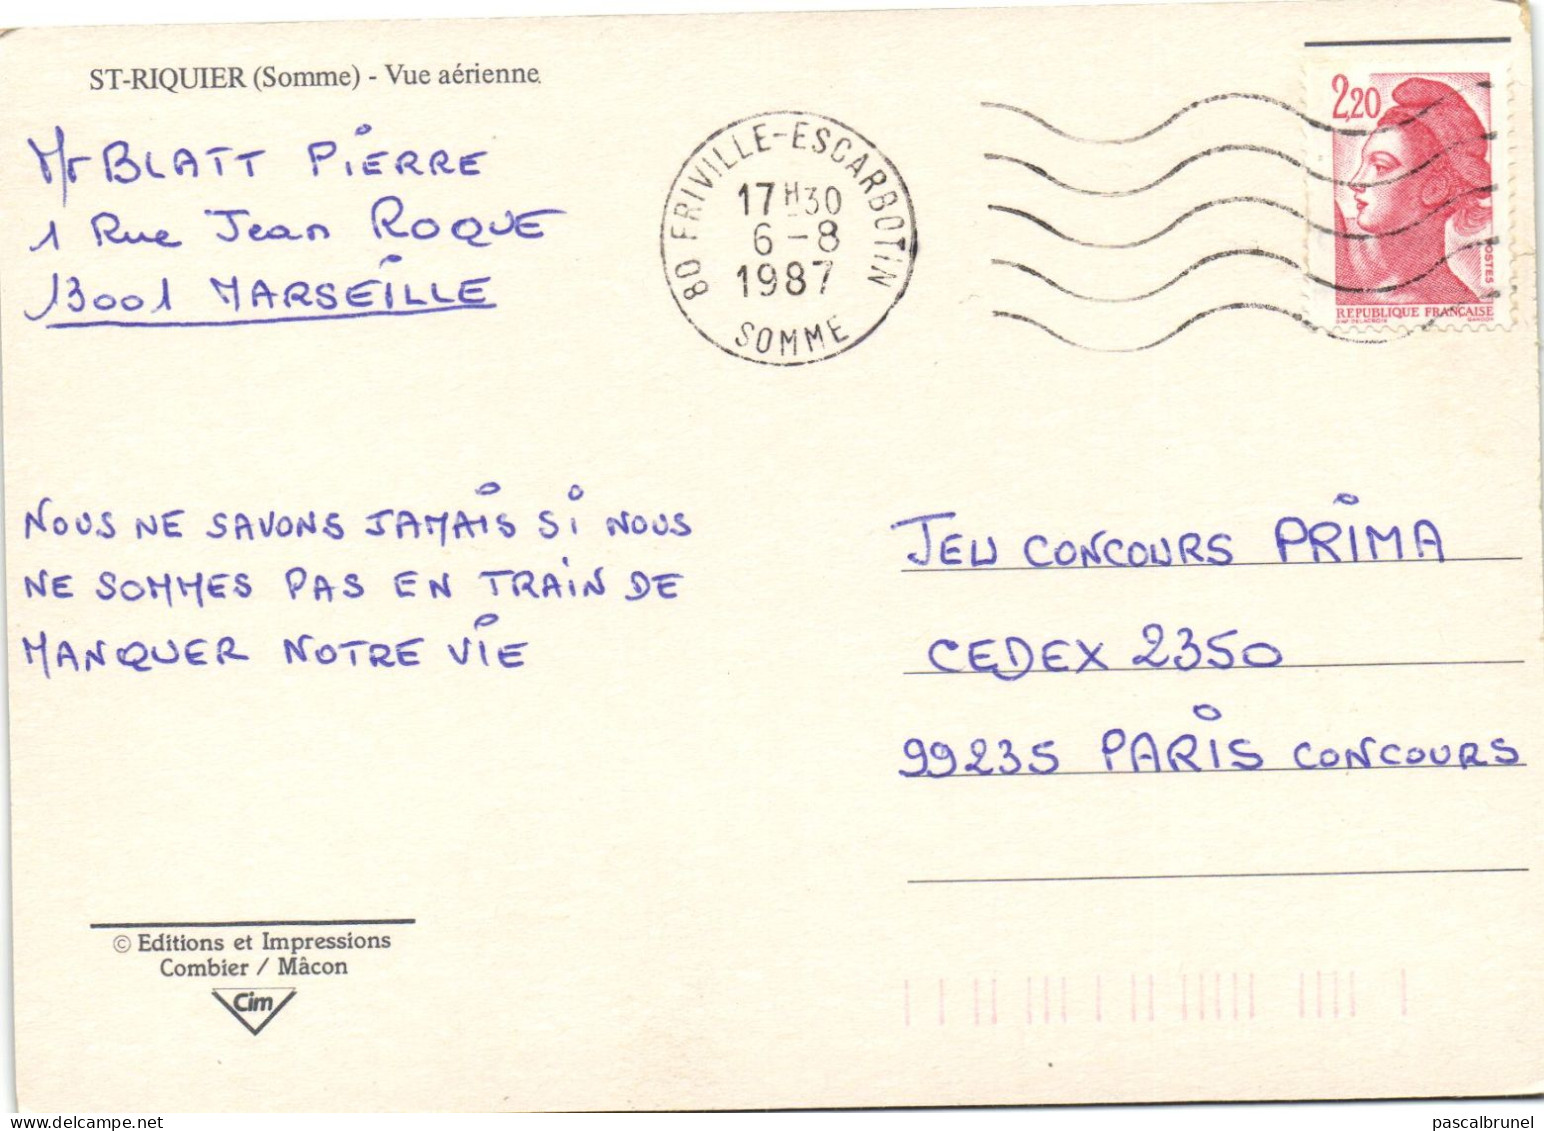 ST-RIQUIER (Somme) - Vue aérienne
Mr BLATT PIERRE
1 Rue Jean ROQUE
13001 MARSEILLE
80 FRIVILLE-ESCARBOTIN
17H30
6-8
1987
SOMME
2,20
POSTES
REPUBLIQUE FRANÇAISE
D'AP. DELACROIX GANDON
NOUS NE SAVONS JAMAIS SI NOUS
NE SOMMES PAS EN TRAIN DE
MANQUER NOTRE VIE
JEU CONCOURS PRIMA
CEDEX 2350
99235 PARIS CONCOURS
© Editions et Impressions
Combier / Mâcon
Cim
pascalbrunel